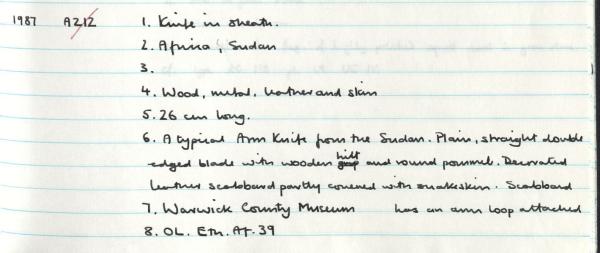 1987 A2.12 1. Knife in sheath.
2. Africa, Sudan
3.
4. Wood, metal, leather and skin
5. 26 cm long.
6. A typical Arm Knife from the Sudan. Plain, straight double
edged blade with wooden hilt and round pommel. Decorated
leather scabbard partly covered with snakeskin. Scabbard
7. Warwick County Museum has an arm loop attached
8. OL. Eth. Af. 39